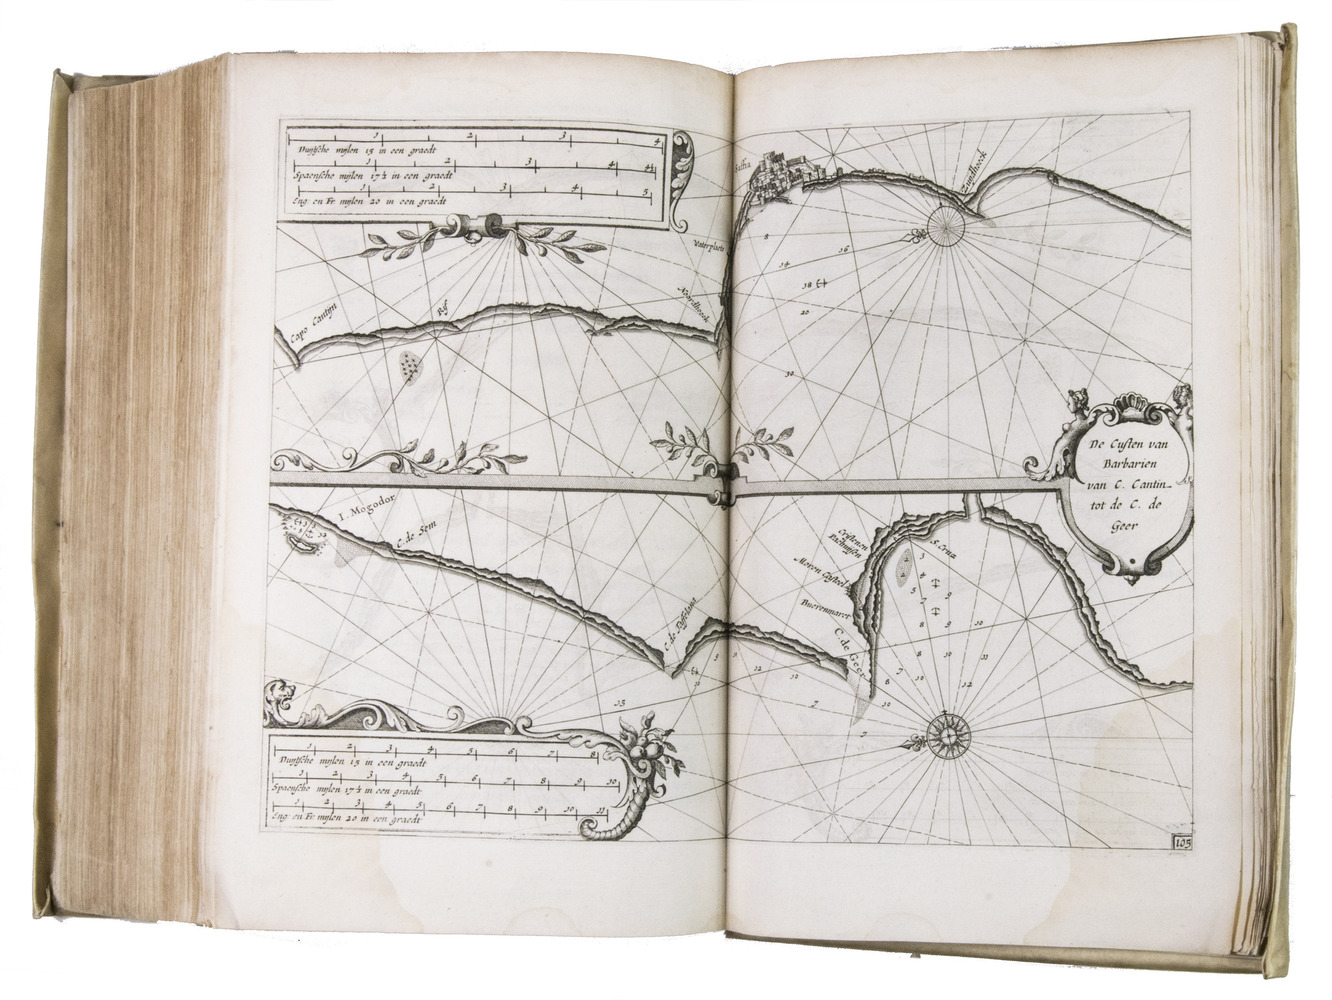 1 2 3 4
Duytsche mylen 15 in een graedt
1 2 3 4 4½
Spaensche mylen 17½ in een graedt
1 2 3 4 5
Eng: en Fr: mylen 20 in een graedt
Saffia
Zuydhoeck
Waterplaets
Noordhoeck
Capo Cantijn
Rif
8
16
14
18
20
30
De Custen van
Barbarien
van C. Cantin
tot de C. de
Geer
I. Mogodor
C. de Sem
C. de Taffelana
Crystenen
Packhuysen
Moren Casteel
Buerenmarct
C. de Geer
S. Crus
12
10
12
15
1 2 3 4 5 6 7 8
Duytsche mylen 15 in een graedt
1 2 3 4 5 6 7 8 9 10
Spaensche mylen 17½ in een graedt
1 2 3 4 5 6 7 8 9 10 11
Eng: en Fr: mylen 20 in een graedt
105